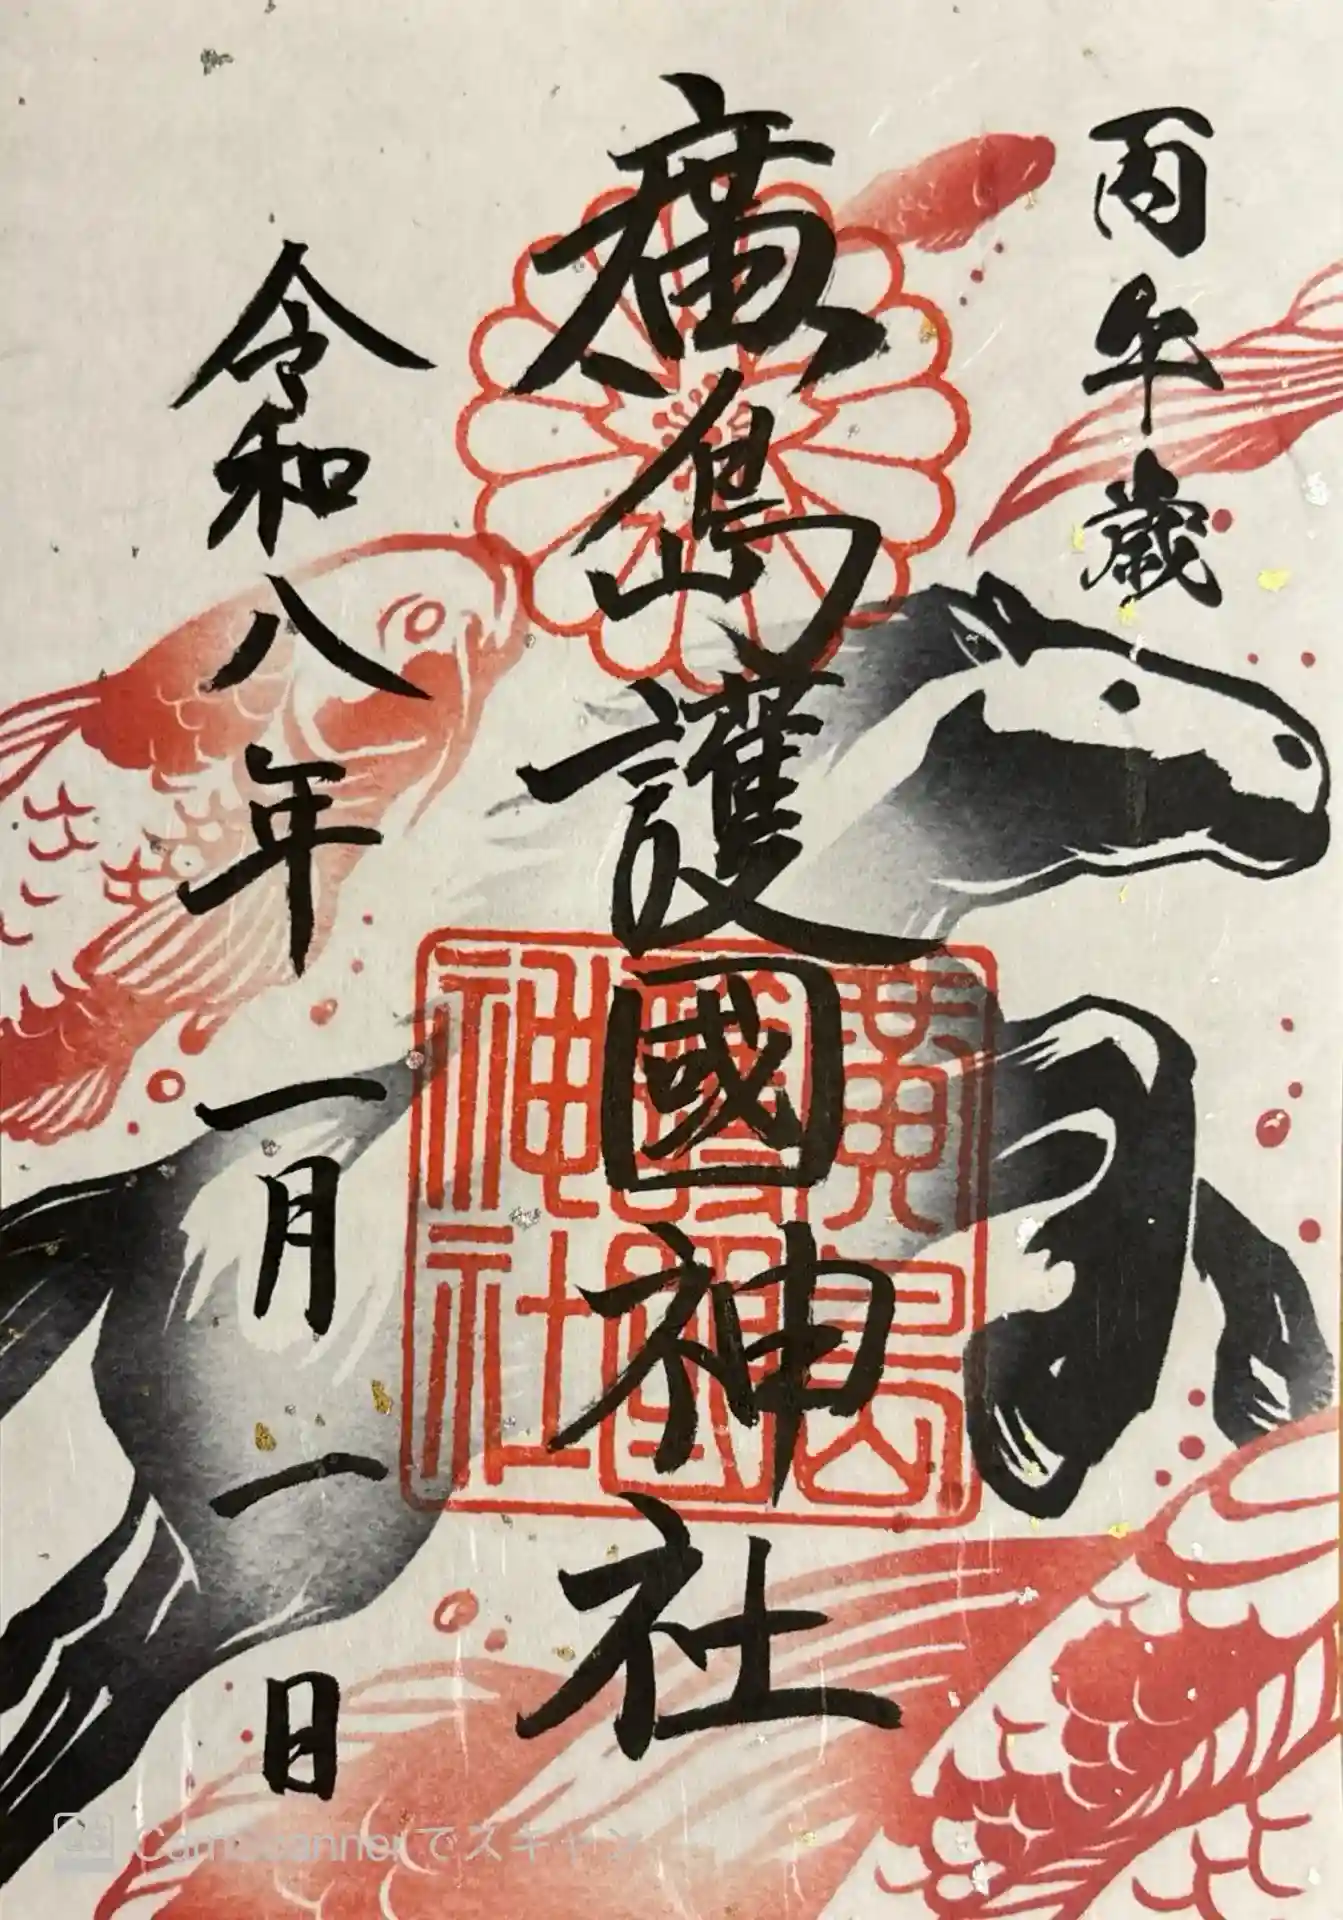 丙午歳
廣島護國神社
令和八年一月一日
廣島
護國
神社
CamScannerでスキャン